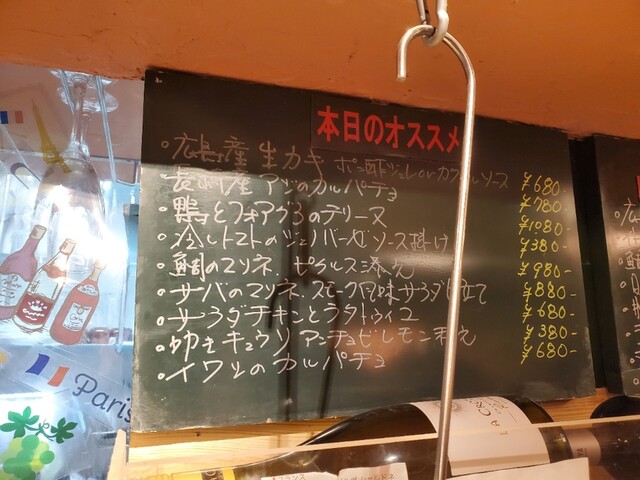 本日のオススメ
・広島産 生カキ ポン酢ジュレorカクテルソース ¥680-
長崎産 アジのカルパチョ ¥780-
・鴨とフォアグラのテリーヌ ¥1080-
・冷しトマトのジェノバーゼソース掛け ¥380-
・鯛のマリネ ピクルス添え ¥980-
・サバのマリネ スモーク風味サラダ仕立て ¥880-
・サラダチキンとラタトゥイユ ¥680-
・叩きキュウリ アンチョビレモン和え ¥380-
・イワシのカルパチョ ¥680-
Paris
フランス